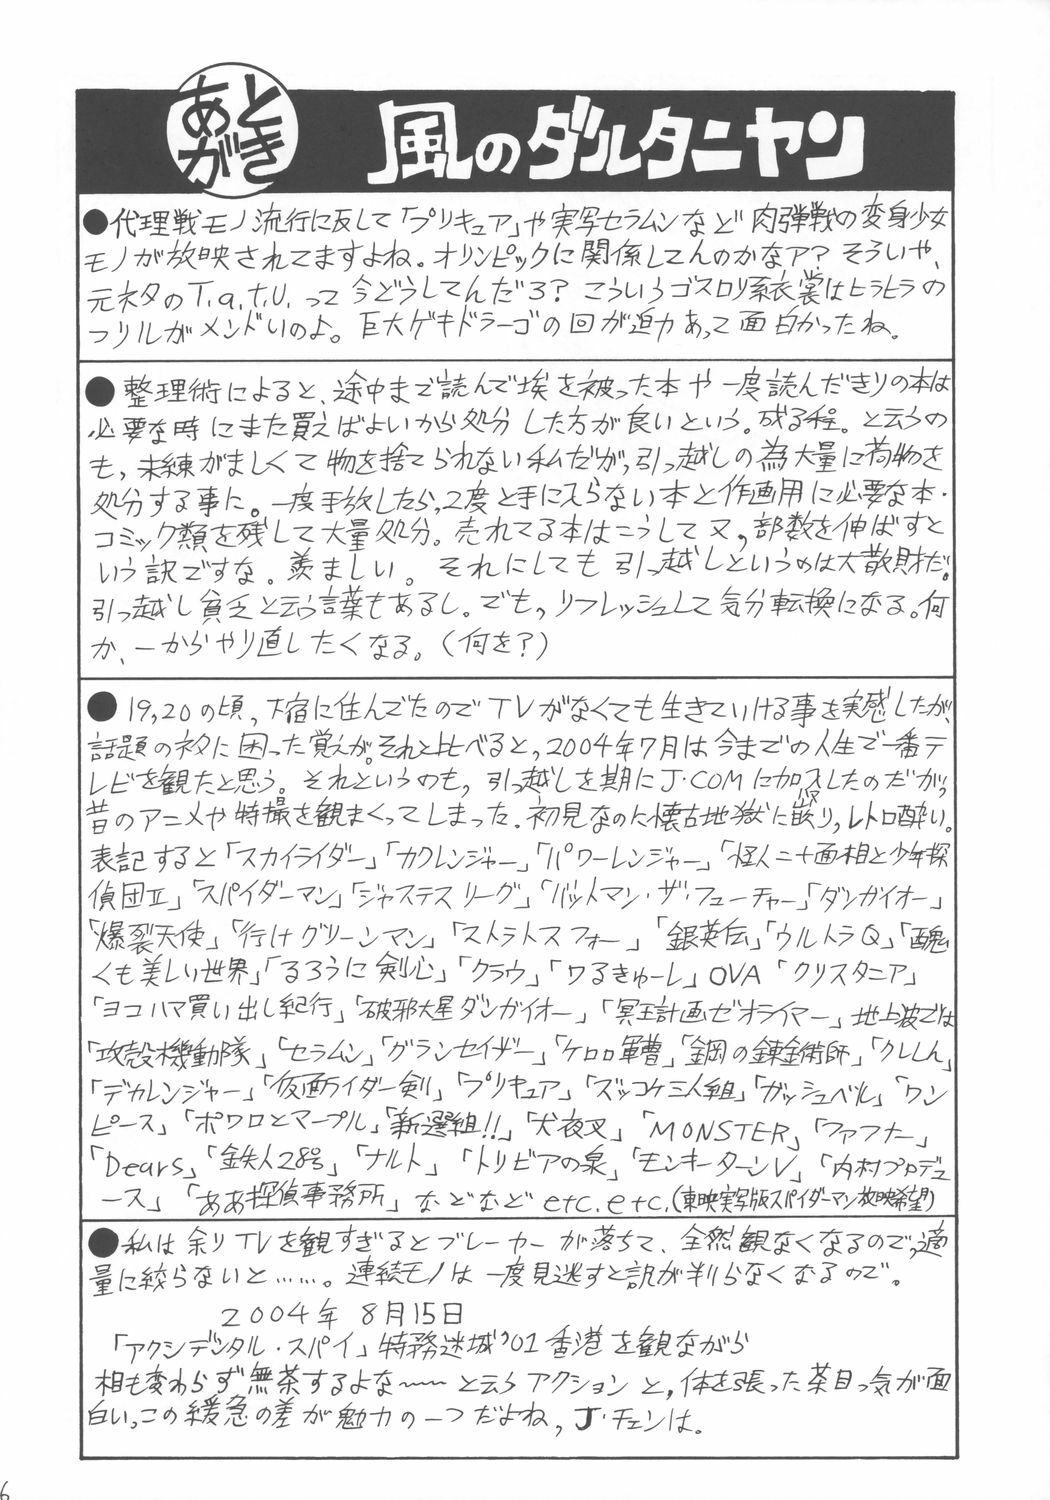 あとがき 風のダルタニヤン
●代理戦モノ流行に反して「プリキュア」や実写セラムンなど肉弾戦の変身少女
モノが放映されてますよね。オリンピックに関係してんのかなァ?そういや、
元ネタのT.a.t.U.って今どうしてんだろ?こういうゴスロリ系衣裳はヒラヒラの
フリルがメンドいのよ。巨大ゲキドラーゴの回が迫力あって面白かったね。
●整理術によると、途中まで読んで埃を被った本や一度読んだきりの本は
必要な時にまた買えばよいから処分した方が良いという。成る程。と云うの
も、未練がましくて物を捨てられない私だが、引っ越しの為大量に荷物を
処分する事に。一度手放したら、2度と手に入らない本と作画用に必要な本・
コミック類を残して大量処分。売れてる本はこうして又、部数を伸ばすと
いう訳ですな。羨ましい。それにしても引っ越しというのは大散財だ。
引っ越し貧乏と云う言葉もあるし。でも、リフレッシュして気分転換になる。何
か、一からやり直したくなる。(何を?)
●19,20の頃、下宿に住んでたのでTVがなくても生きていける事を実感したが、
話題のネタに困った覚えが。それと比べると、2004年7月は今までの人生で一番テ
レビを観たと思う。それというのも、引っ越しを期にJ·COMに加入したのだが、
昔のアニメや特撮を観まくってしまった。初見なのに懐古地獄に嵌り、レトロ酔い。
ハマ
表記すると「スカイライダー」「カクレンジャー」「パワーレンジャー」「怪人二十面相と少年探
偵団Ⅱ」「スパイダーマン」「ジャステスリーグ」「バットマン・ザ・フューチャー」「ダンガイオー」
「爆裂天使」「行けグリーンマン」「ストラトスフォー」「銀英伝」「ウルトラQ」「醜
くも美しい世界」「るろうに剣心」「クラウ」「ワるきゅーレ」OVA「クリスタニア」
「ヨコハマ買い出し紀行」「破邪大星ダンガイオー」「冥王計画ゼオライマー」地上波では
「攻殻機動隊」「セラムン」「グランセイザー」「ケロロ軍曹」「鋼の錬金術師」「クレしん」
「デカレンジャー」「仮面ライダー剣」「プリキュア」「ズッコケ三人組」「ガッシュベル」「ワン
ピース」「ポワロとマープル」「新選組!!」「犬夜叉」「MONSTER」「ファフナー」
「Dears」「鉄人28号」「ナルト」「トリビアの泉」「モンキーターンV」「内村プロデュ
ース」「ああ探偵事務所」などなどetc.etc.(東映実写版スパイダーマン放映希望)
●私は余りTVを観すぎるとブレーカーが落ちて、全然観なくなるので、適
量に絞らないと……。連続モノは一度見逃すと訳が判らなくなるので。
2004年8月15日
「アクシデンタル・スパイ」特務迷城'01香港を観ながら
相も変わらず無茶するよな〜〜と云うアクションと、体を張った茶目っ気が面
白い。この緩急の差が魅力の一つだよね、J・チェンは。
6